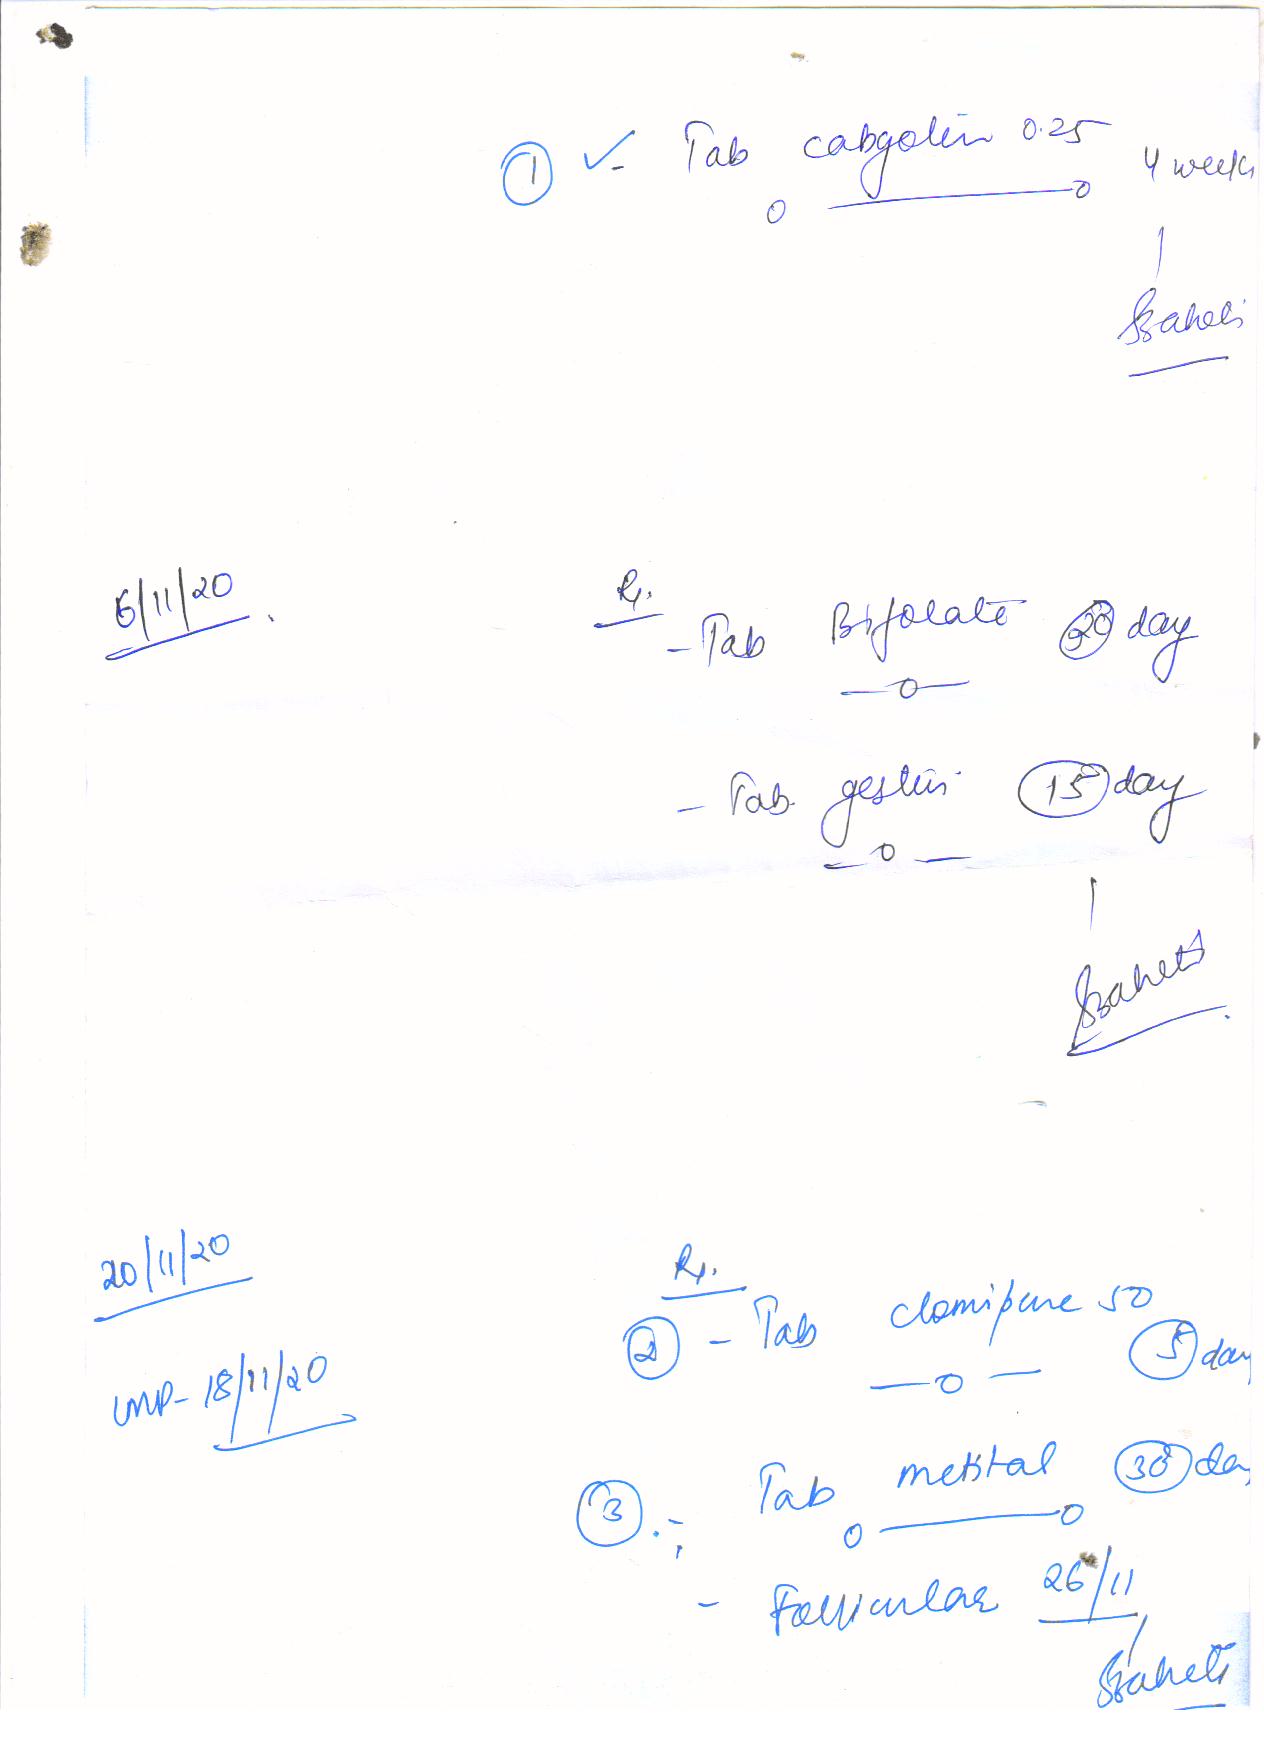 ① ✓- Tab cabgolin 0.25
4 weeks
0 ——— 0
6/11/20
Rx.
- Tab Bifolate 20 day
— 0 —
- Tab. gestin 15 day
— 0 —
20/11/20
Rx.
② - Tab clomipure 50
5 day
— 0 —
LMP- 18/11/20
③ Tab 30 day
0 ——— 0
- Follicular 26/11